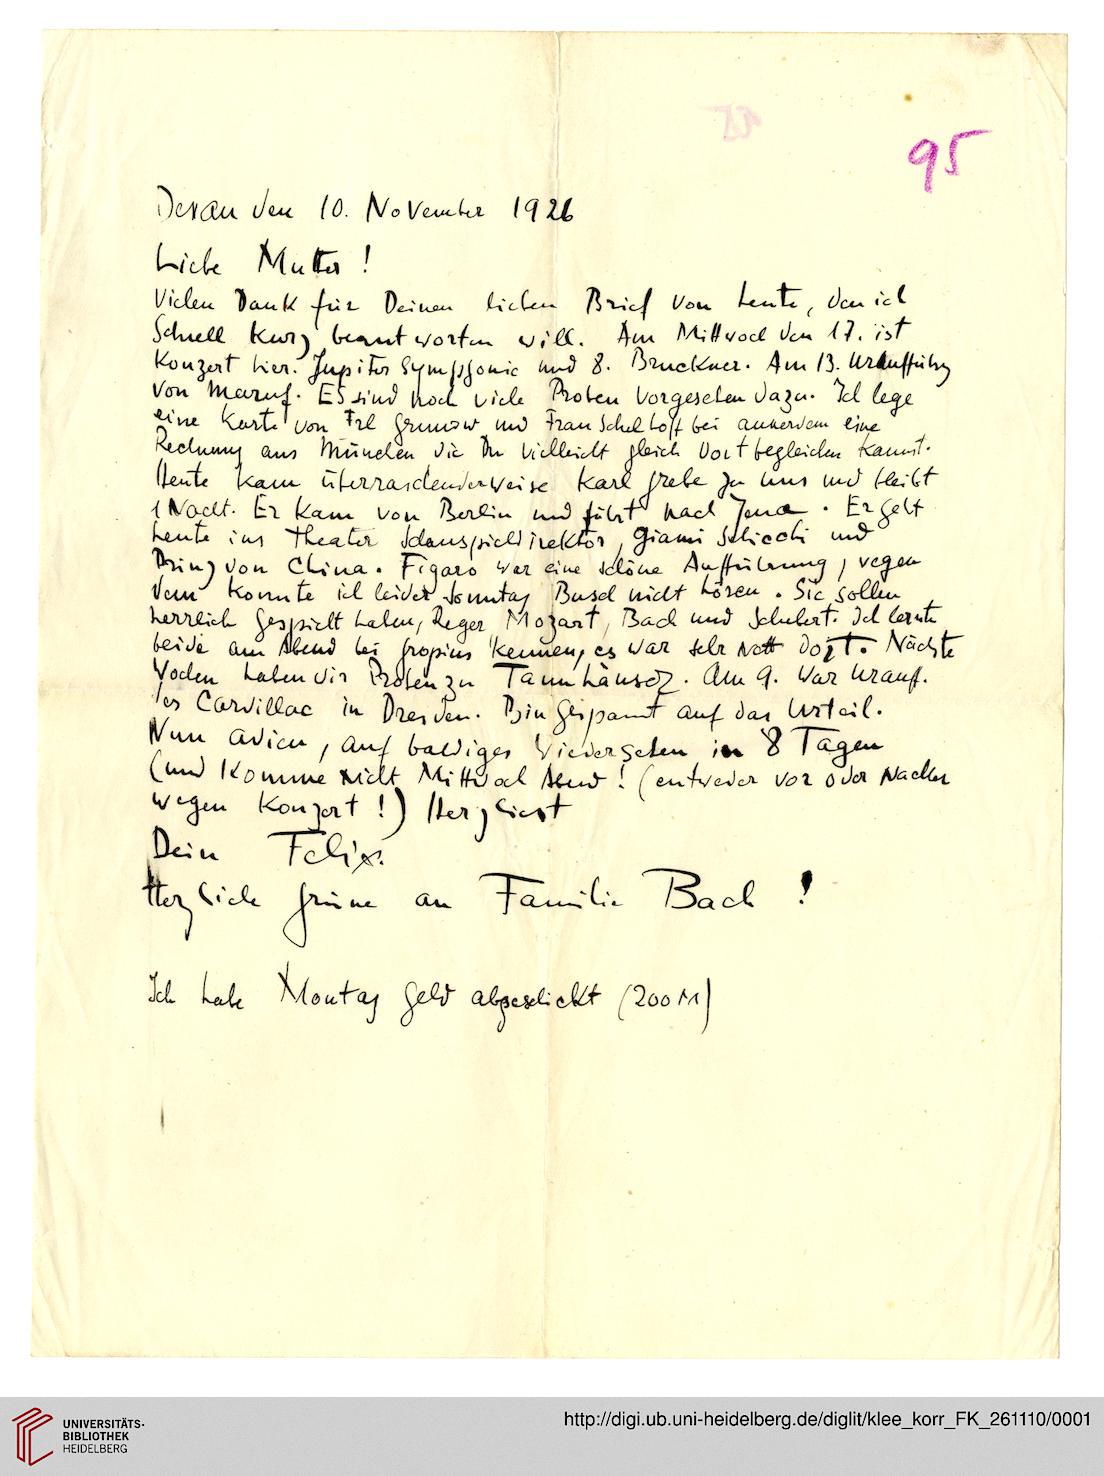 95
Dessau den 10. November 1926
Liebe Mutter!
Vielen Dank für Deinen lieben Brief von heute, den ich
schnell kurz beantworten will. Am Mittwoch den 17. ist
Konzert hier. Jupiter Symphonie und 8. Bruckner. Am 13. Uraufführg
von Maruf. Es sind noch viele Proben vorgesehen dazu. Ich lege
eine Karte von Frl Grunow und Frau Schelhoff bei ausserdem eine
Rechnung aus München die Du vielleicht gleich dort begleichen kannst.
Heute kam überraschenderweise Karl Grebe zu uns und bleibt
1 Nacht. Er kam von Berlin und fährt nach Jena. Er geht
heute ins Theater Schauspieldirektor, Gianni Schicchi und
Prinz von China. Figaro war eine schöne Aufführung, wegen
dem konnte ich leider Sonntag Busch nicht hören. Sie sollen
herrlich gespielt haben, Reger Mozart, Bach und Schubert. Ich lernte
beide am Abend bei Gropius kennen, es war sehr nett dort. Nächste
Wochen haben wir Proben zu Tannhäuser. Am 9. war Urauf.
des Cardillac in Dresden. Bin gespannt auf das Urteil.
Nun adieu, auf baldiges Wiedersehen in 8 Tagen
(und komme nicht Mittwoch Abend! (entweder vor oder nachher
wegen Konzert!) Herzlichst
Dein Felix.
Herzliche Grüsse an Familie Bach!
Ich habe Montag Geld abgeschickt (200 M)
UNIVERSITÄTS-
BIBLIOTHEK
HEIDELBERG
http://digi.ub.uni-heidelberg.de/diglit/klee_korr_FK_261110/0001